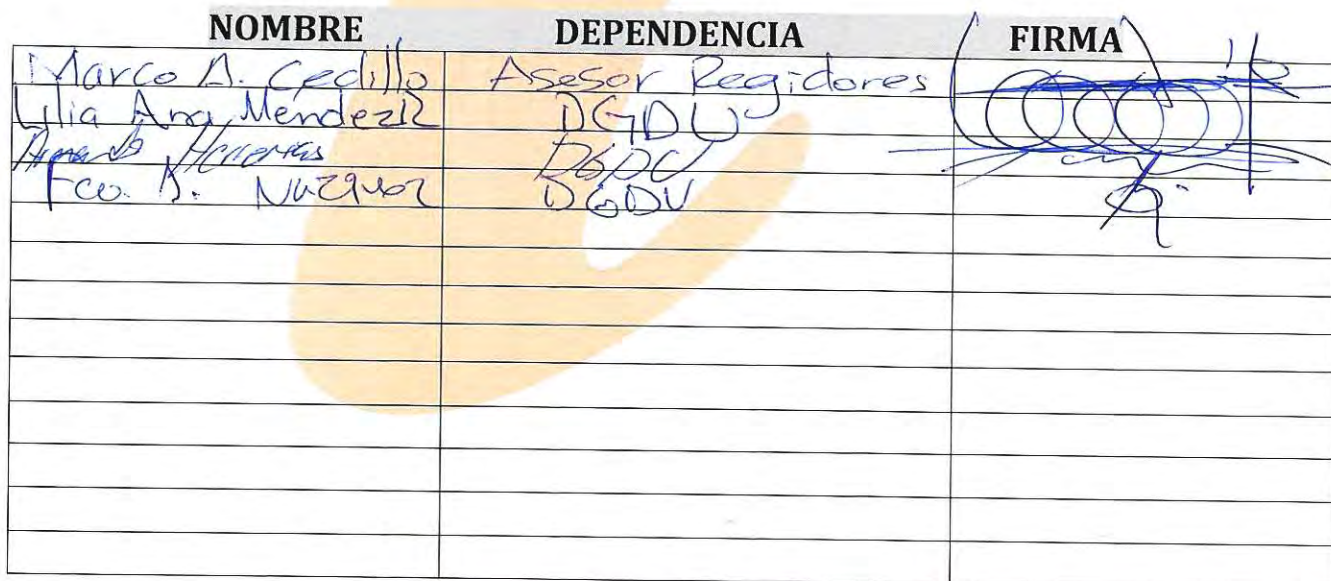 NOMBRE DEPENDENCIA FIRMA
Marco A. Cedillo Asesor Regidores
Lilia Ana Mendez R DGDU
DGDU
Fco. J. DGDU